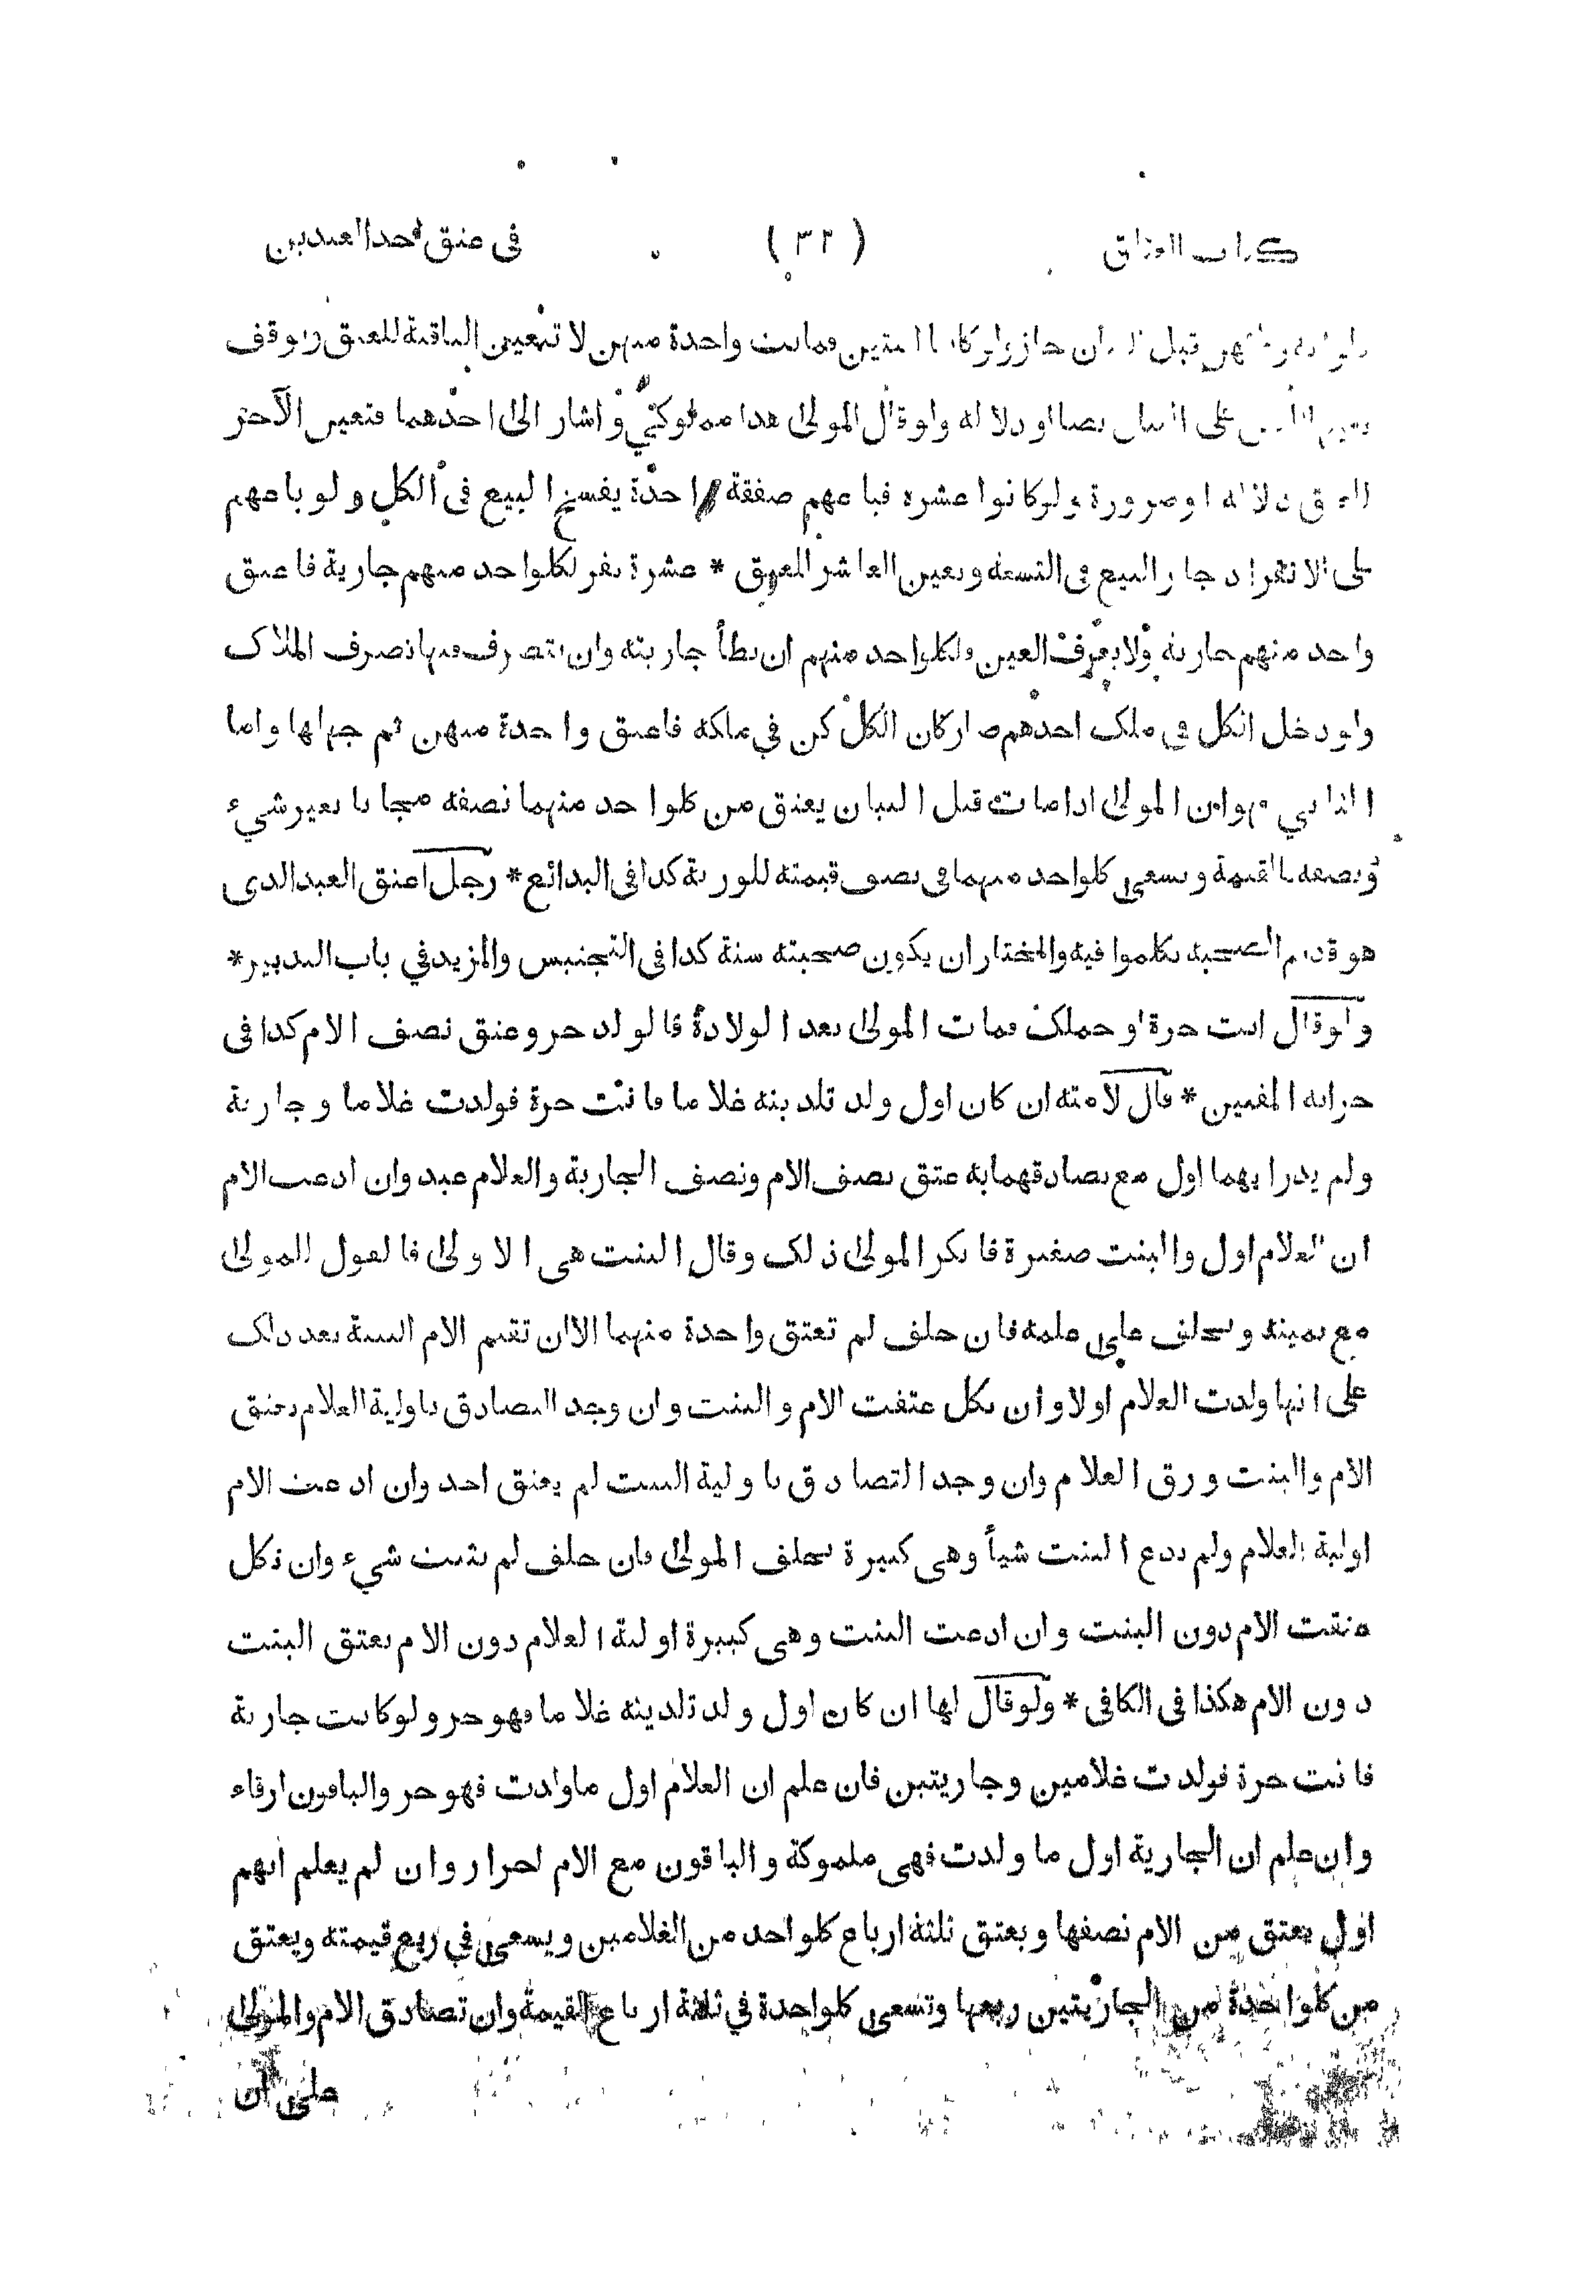 كتاب العتاق (٣٢) فى عتق احد العبدين
قبل جاز ولو كانتا اثنتين فماتت واحدة منهن لا تتعين الباقية للعتق ويوقف
على نصا او دلالة ولو قال المولى هذا مملوكي و اشار الى احدهما فتعين الآخر
دلالة او ضرورة ولو كانوا عشرة فبا عهم صفقة واحدة يفسخ البيع فى الكل ولو باعهم
على الانفراد جاز البيع فى التسعة وتعين العاشر للعتق * عشرة نفر لكلواحد منهم جارية فاعتق
واحد منهم جاريته ولا يعرف العين ولكلواحد منهم ان يطأ جاريته وان يتصرف فيها تصرف الملاك
ولو دخل الكل فى ملك احدهم صار كان الكل كن في ملكه فاعتق واحدة منهن ثم جهلها واما
المولى اذا مات قبل البيان يعتق من كلواحد منهما نصفه مجانا بغير شيء
ونصفه بالقيمة ويسعى كلواحد منهما فى نصف قيمته للورثة كذا فى البدائع * رجل اعتق العبد الذى
هو قديم الصحبة تكلموا فيه والمختار ان يكون صحبته سنة كذا فى التجنيس والمزيد في باب التدبير *
ولو قال انت حرة او حملك فمات المولى بعد الولادة فالولد حر وعتق نصف الام كذا فى
خزانة المفتين * قال لامته ان كان اول ولد تلدينه غلاما فانت حرة فولدت غلاما وجارية
ولم يدر ايهما اول مع تصادقهما به عتق نصف الام ونصف الجارية والغلام عبد وان ادعت الام
ان الغلام اول والبنت صغيرة فانكر المولى ذلك وقال البنت هى الاولى فالقول للمولى
مع يمينه ويحلف على علمه فان حلف لم تعتق واحدة منهما الا ان تقيم الام البينة بعد ذلك
على انها ولدت الغلام اولا وان نكل عتقت الام والبنت وان وجد التصادق باولية الغلام يعتق
الام والبنت ورق الغلام وان وجد التصادق باولية البنت لم يعتق احد وان ادعت الام
اولية الغلام ولم تدع البنت شيأ وهى كبيرة يحلف المولى فان حلف لم يثبت شيء وان نكل
عتقت الام دون البنت وان ادعت البنت وهى كبيرة اولية الغلام دون الام يعتق البنت
دون الام هكذا فى الكافى * ولو قال لها ان كان اول ولد تلدينه غلاما فهو حر ولو كانت جارية
فانت حرة فولدت غلامين وجاريتين فان علم ان الغلام اول ما ولدت فهو حر والباقون ارقاء
وان علم ان الجارية اول ما ولدت فهى مملوكة والباقون مع الام احرار وان لم يعلم ايهم
اول يعتق من الام نصفها ويعتق ثلثة ارباع كلواحد من الغلامين ويسعى في ربع قيمته ويعتق
من كلواحدة من الجاريتين ربعها وتسعى كلواحدة في ثلثة ارباع القيمة وان تصادق الام والمولى
على ان